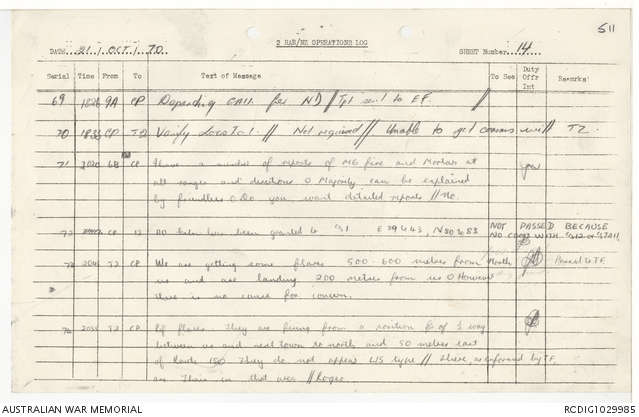 511
2 RAR/NZ OPERATIONS LOG
DATE 21 / OCT / 70 SHEET Number 14
Serial Time From To Text of Message To See Duty Offr Int Remarks
69 9A CP Depending call for ND // Tpt sent to EF. //
70 1833 CP T2 Verify Locstat. // Not required // Unable to get comms with T2.
71 2020 6B CP I have a number of reports of MG fire and Mortars at
all ranges and directions O Majority can be explained
by friendlies O Do you want detailed reports // No.
72 CP 12 no has been granted to NOT PASSED BECAUSE
NO COMMS WITH
73 2046 T2 CP We are getting some flares 500-600 metres from North Passed to TF.
us and are landing 200 metres from us O However
there is no cause for concern.
74 T2 CP Ref flares. They are firing from a position of 3 way
between us and next town to north and 50 metres east
of Route 15O They do not appear US type // there as informed by TF.
are in that area // Roger
AUSTRALIAN WAR MEMORIAL RCDIG1029985